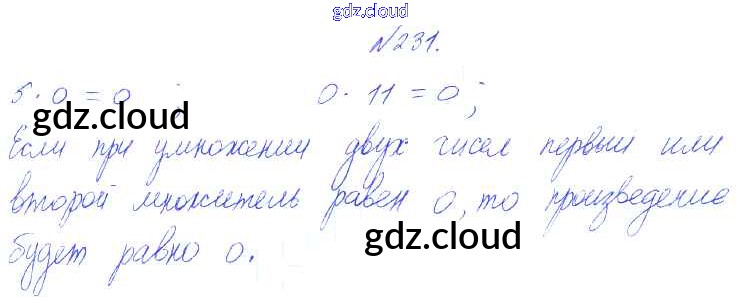 gdz.cloud
№231.
5·0=0; 0·11=0;
gdz.cloud gdz.cloud
Если при умножении двух чисел первый или
второй множитель равен 0, то произведение
будет равно 0.
gdz.cloud